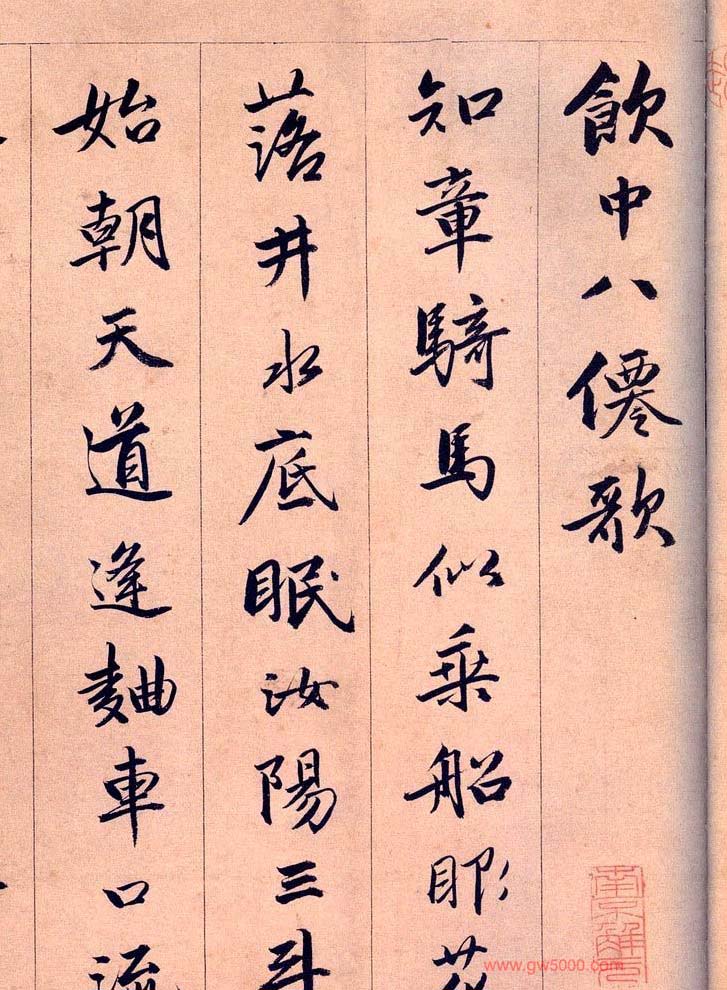 飲中八僊歌
知章騎馬似乗船眼花
落井水底眠汝陽三斗
始朝天道逢麯車口流
www.gw5000.com